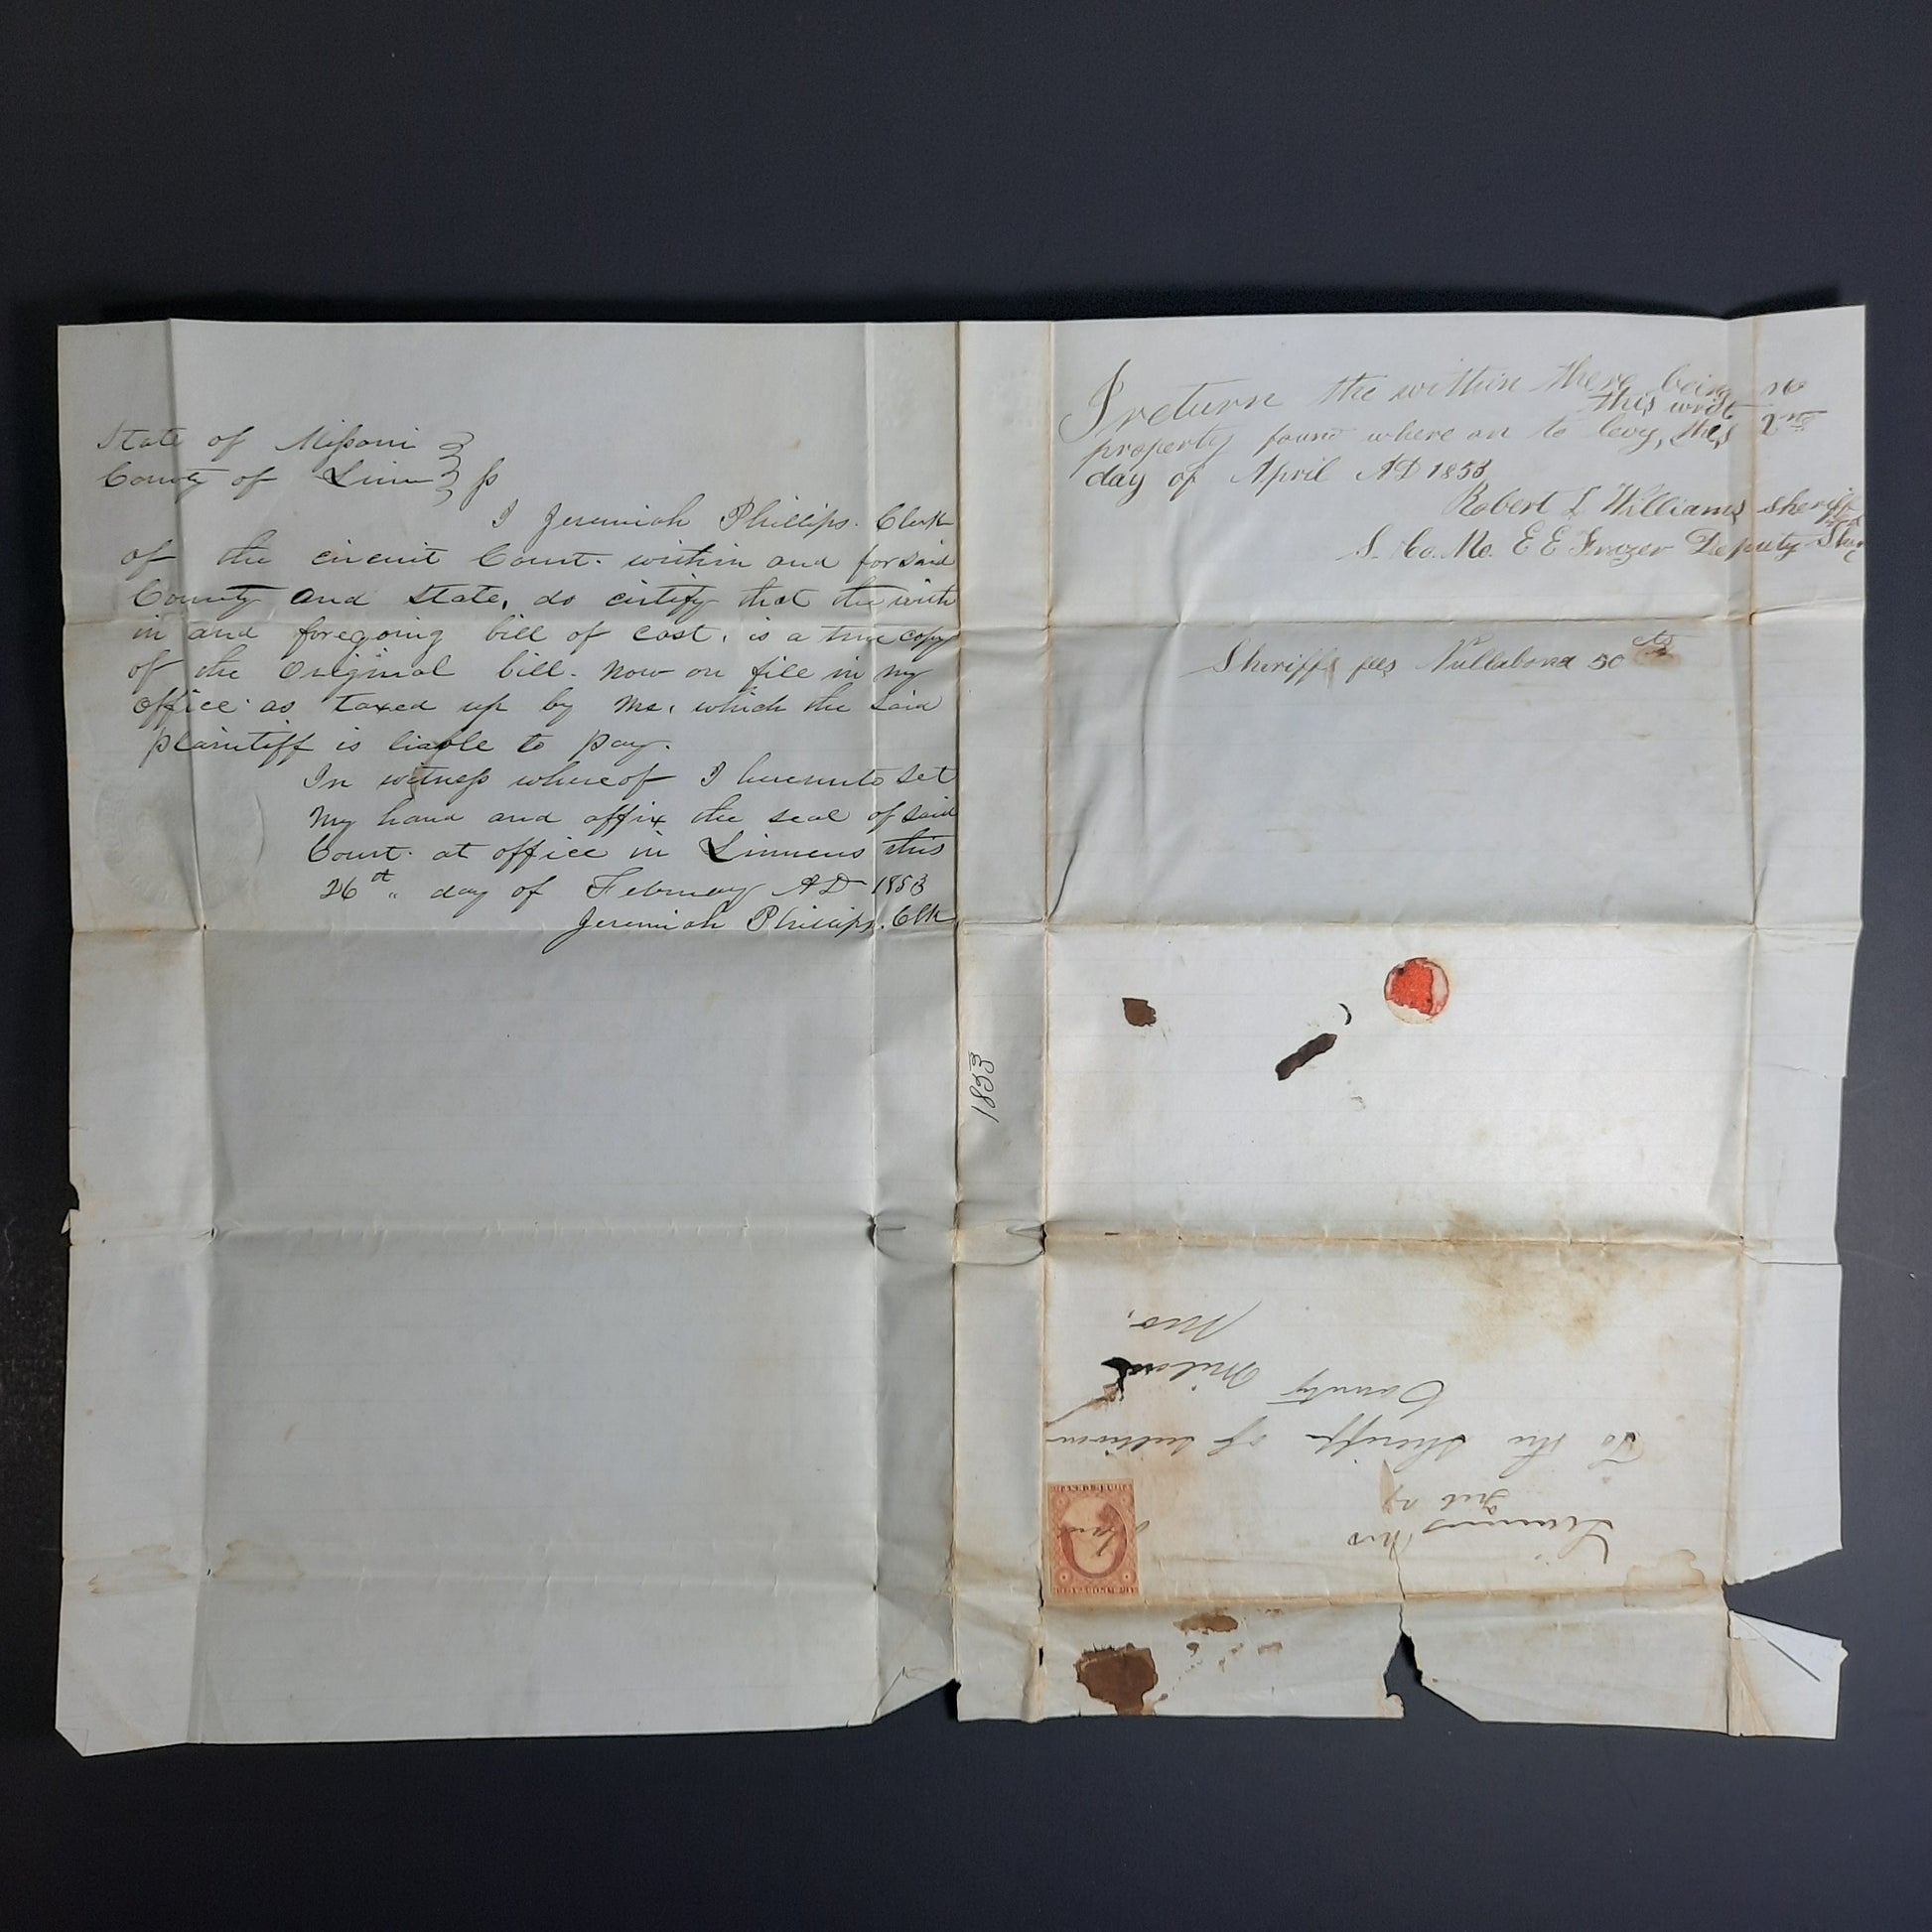 State of Missouri
County of Linn } ss
I Jeremiah Phillips. Clerk
of the circuit Court. within and for said
County and State, do certify that the with
in and foregoing bill of cost, is a true copy
of the Original bill. now on file in my
office as taxed up by me, which the said
plaintiff is liable to pay.
In witness whereof I hereunto set
my hand and affix the seal of said
Court. at office in Linneus this
26th day of February AD 1853
Jeremiah Phillips. Clk
I return the within there being no
this writ
property found where on to levy, this 2nd
day of April AD 1853
Robert L Williams sheriff
S. Co. Mo. E E Frazer Deputy
Sheriffs fees Nullabona 50 cts
1853
Linneus Mo
Feb 27
To the Sheriff of Sullivan
County Milan
Mo.